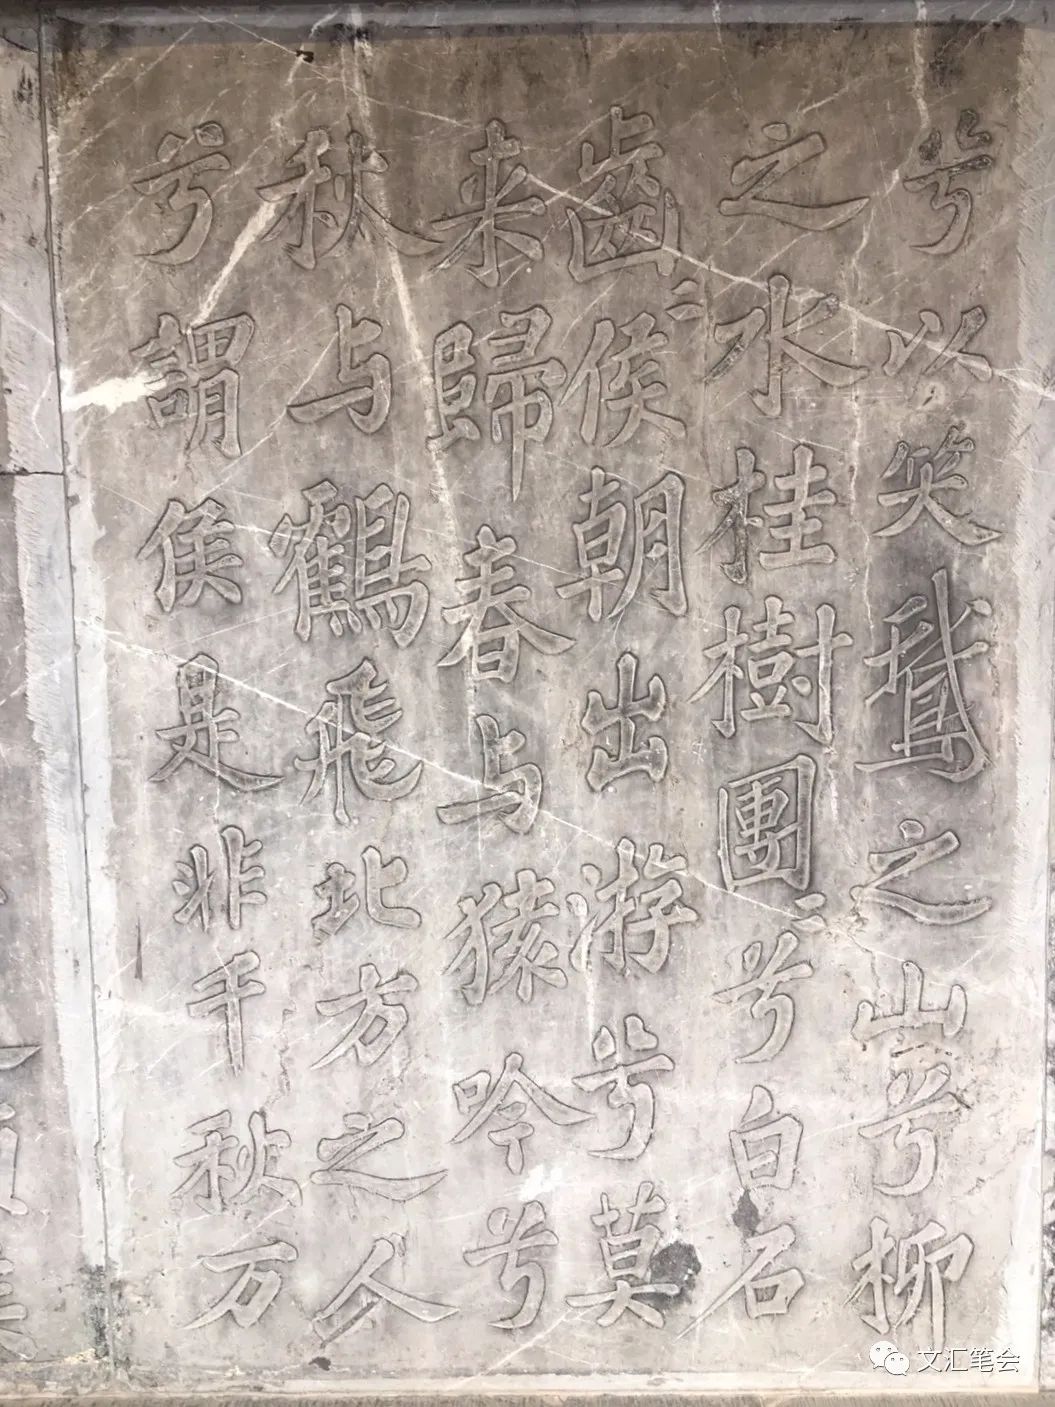 兮以笑鵞之山兮柳
之水桂樹團〻兮白石
齒〻侯朝出游兮莫
来歸春与猿吟兮
秋与鶴飛北方之人
兮謂侯是非千秋万
文汇笔会